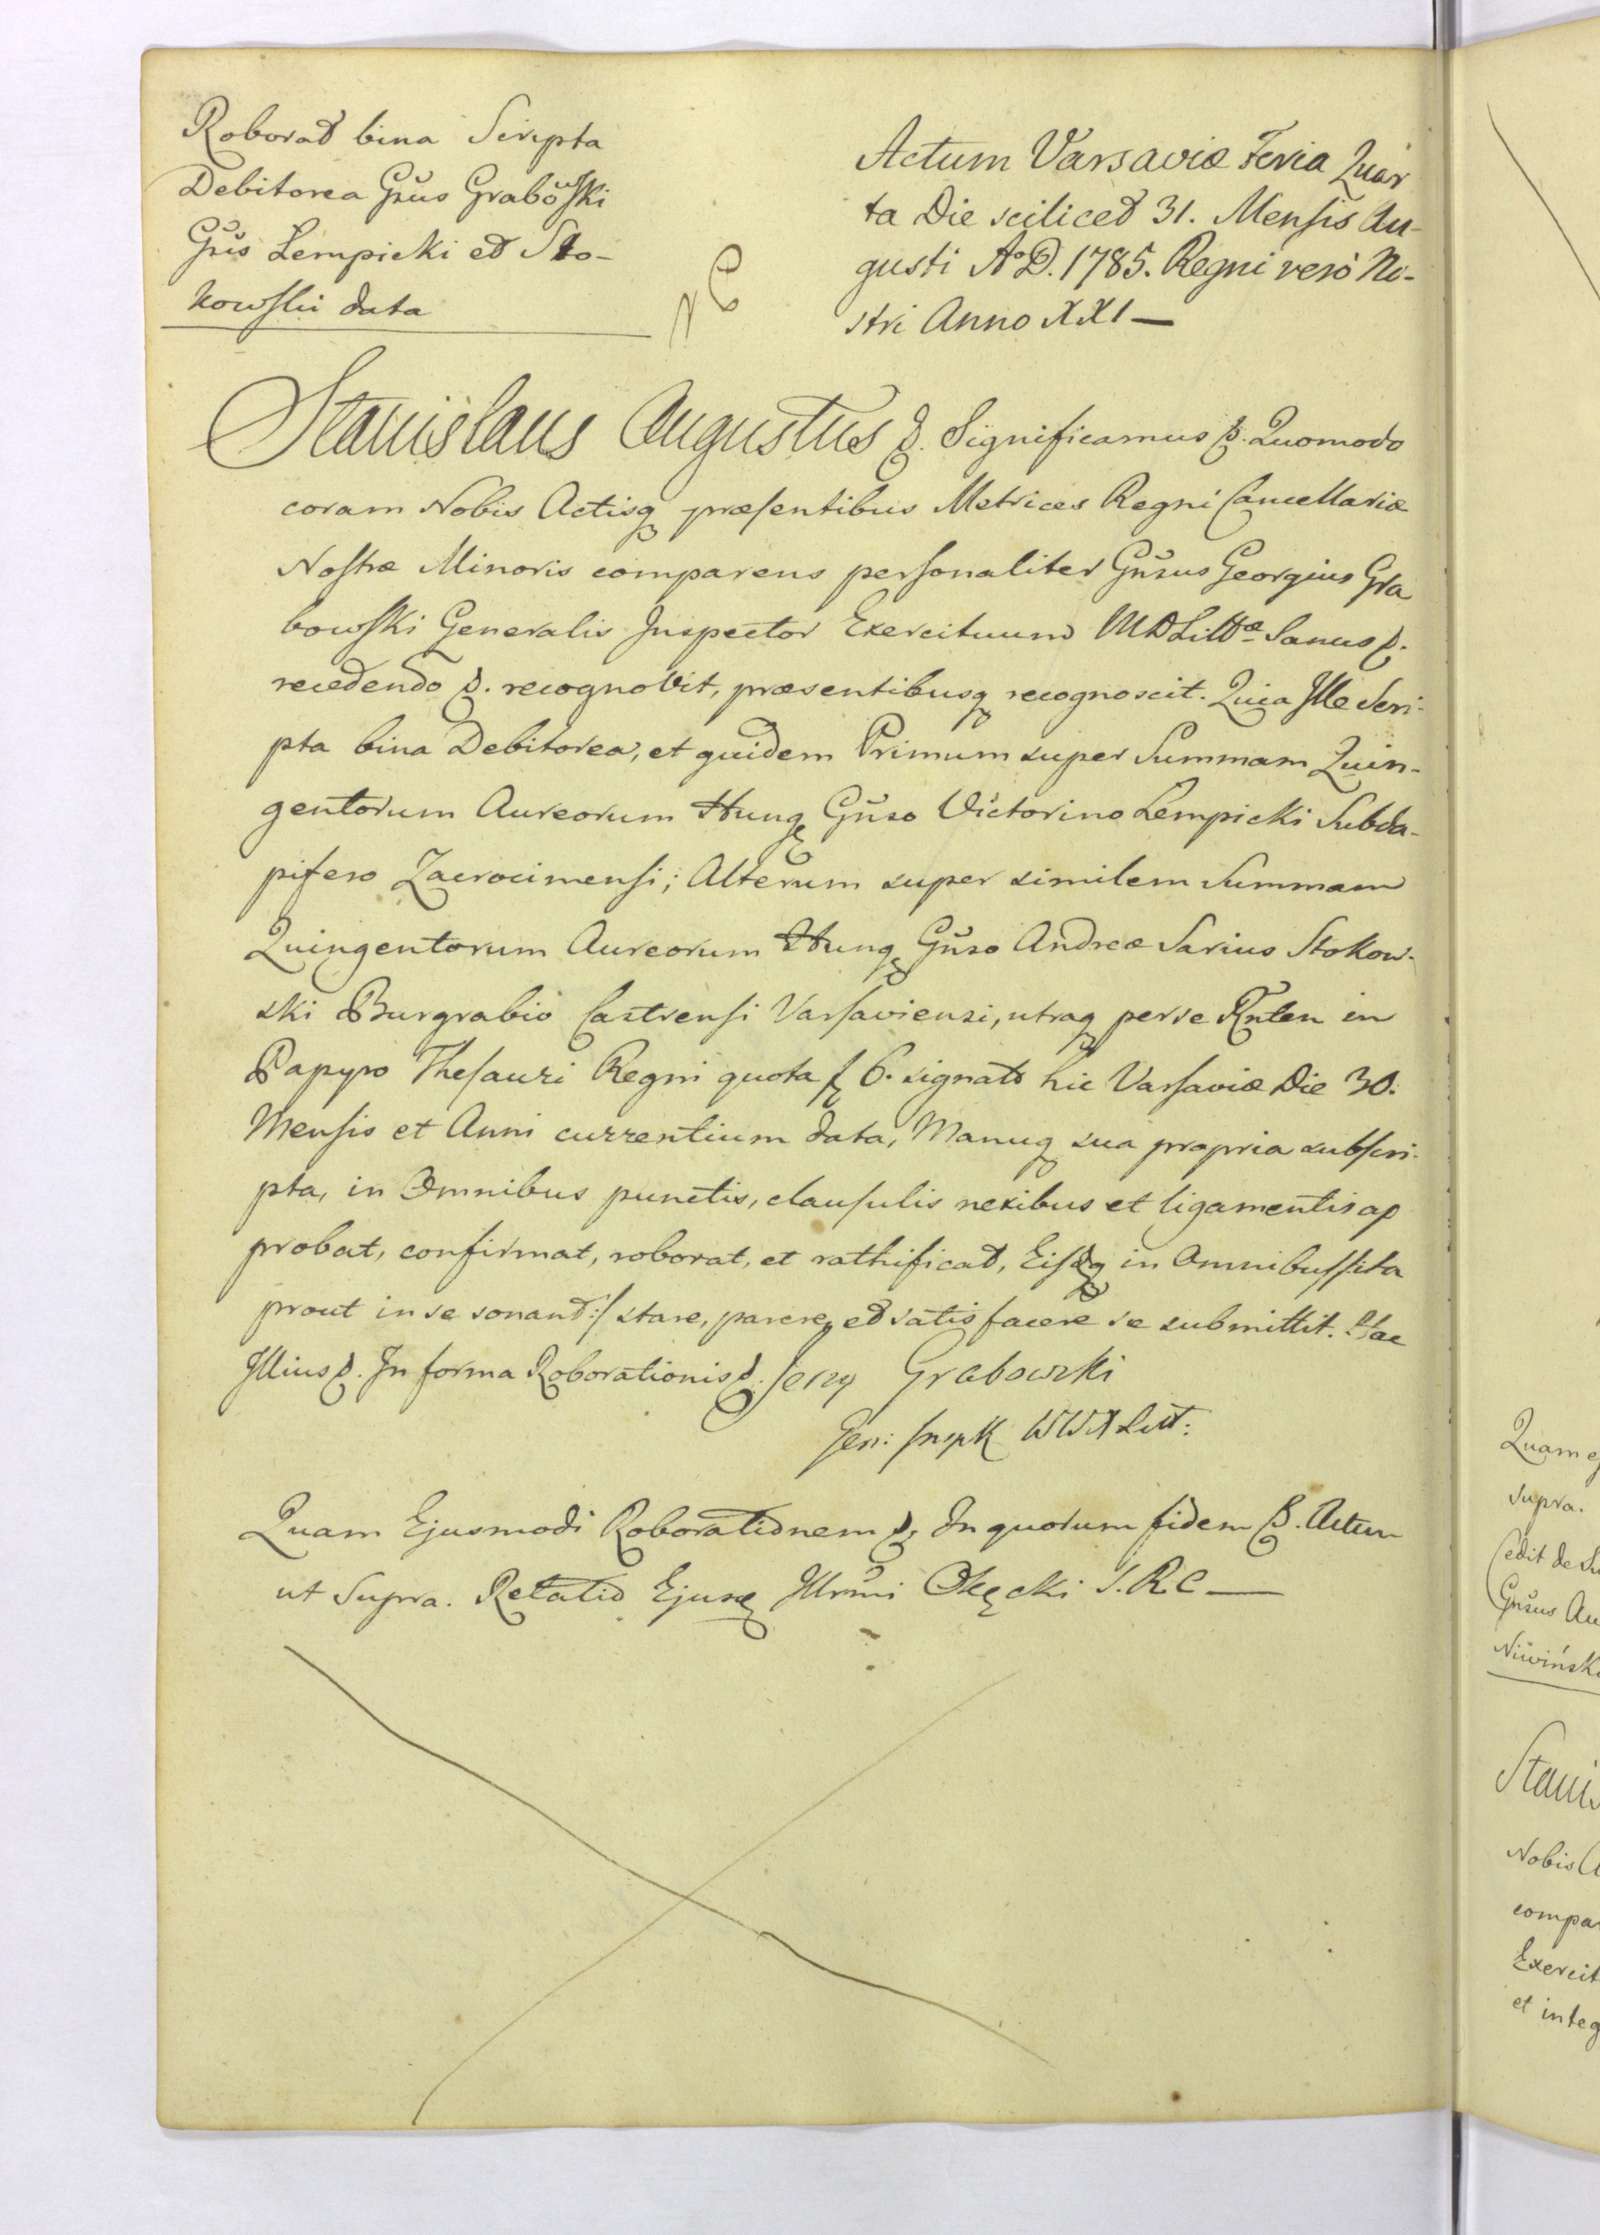 Roborat bina Scripta
Debitorea Gn̄sus Grabowski
Gn̄sis Łempicki et Sto-
kowski data
Actum Varsaviæ Feria Quar
ta Die scilicet 31. Mensis Au-
gusti A°D. 1785. Regni verò No-
stri Anno XXI —
Stanislaus Augustus &. Significamus &. Quomodo
coram Nobis Actisq præsentibus Metrices Regni Cancellariæ
Nostræ Minoris comparens personaliter Gn̄sus Georgius Gra
bowski Generalis Inspector Exercituum MDLittæ Sanus &.
recedendo &. recognovit, præsentibusq recognoscit. Quia Ille Scri-
pta bina Debitorea, et quidem Primum super Summam Quin-
gentorum Aureorum Hung Gn̄so Victorino Łempicki Subda-
pifero Zacrocimensi; Alterum super similem Summam
Quingentorum Aureorum Hung Gn̄so Andreæ Sarius Stokow-
ski Burgrabio Castrensi Varsaviensi, utraq per se Rn̄tem in
Papyro Thesauri Regni quota f 6. signato hic Varsaviæ Die 30.
Mensis et Anni currentium data, Manuq sua propria subscri-
pta, in Omnibus punctis, clausulis nexibus et ligamentis ap
probat, confirmat, roborat, et rathificat, Eisdq in Omnibus /ita
prout in se sonant:/ stare, parere, et satisfacere se submittit. Hac
Illius &. In forma Roborationis &. Jerzy Grabowski
Gen: Inspk WWXLitt:
Quam Ejusmodi Roborationem &. In quorum fidem &. Actum
ut Supra. Relatio Ejusd Illr̄mi Okęcki S.R.C —
Quam ej
supra.
Cedit de Su
Gn̄sus Au
Niwińsk
Stanis
Nobis A
compa
Exercit
et integ